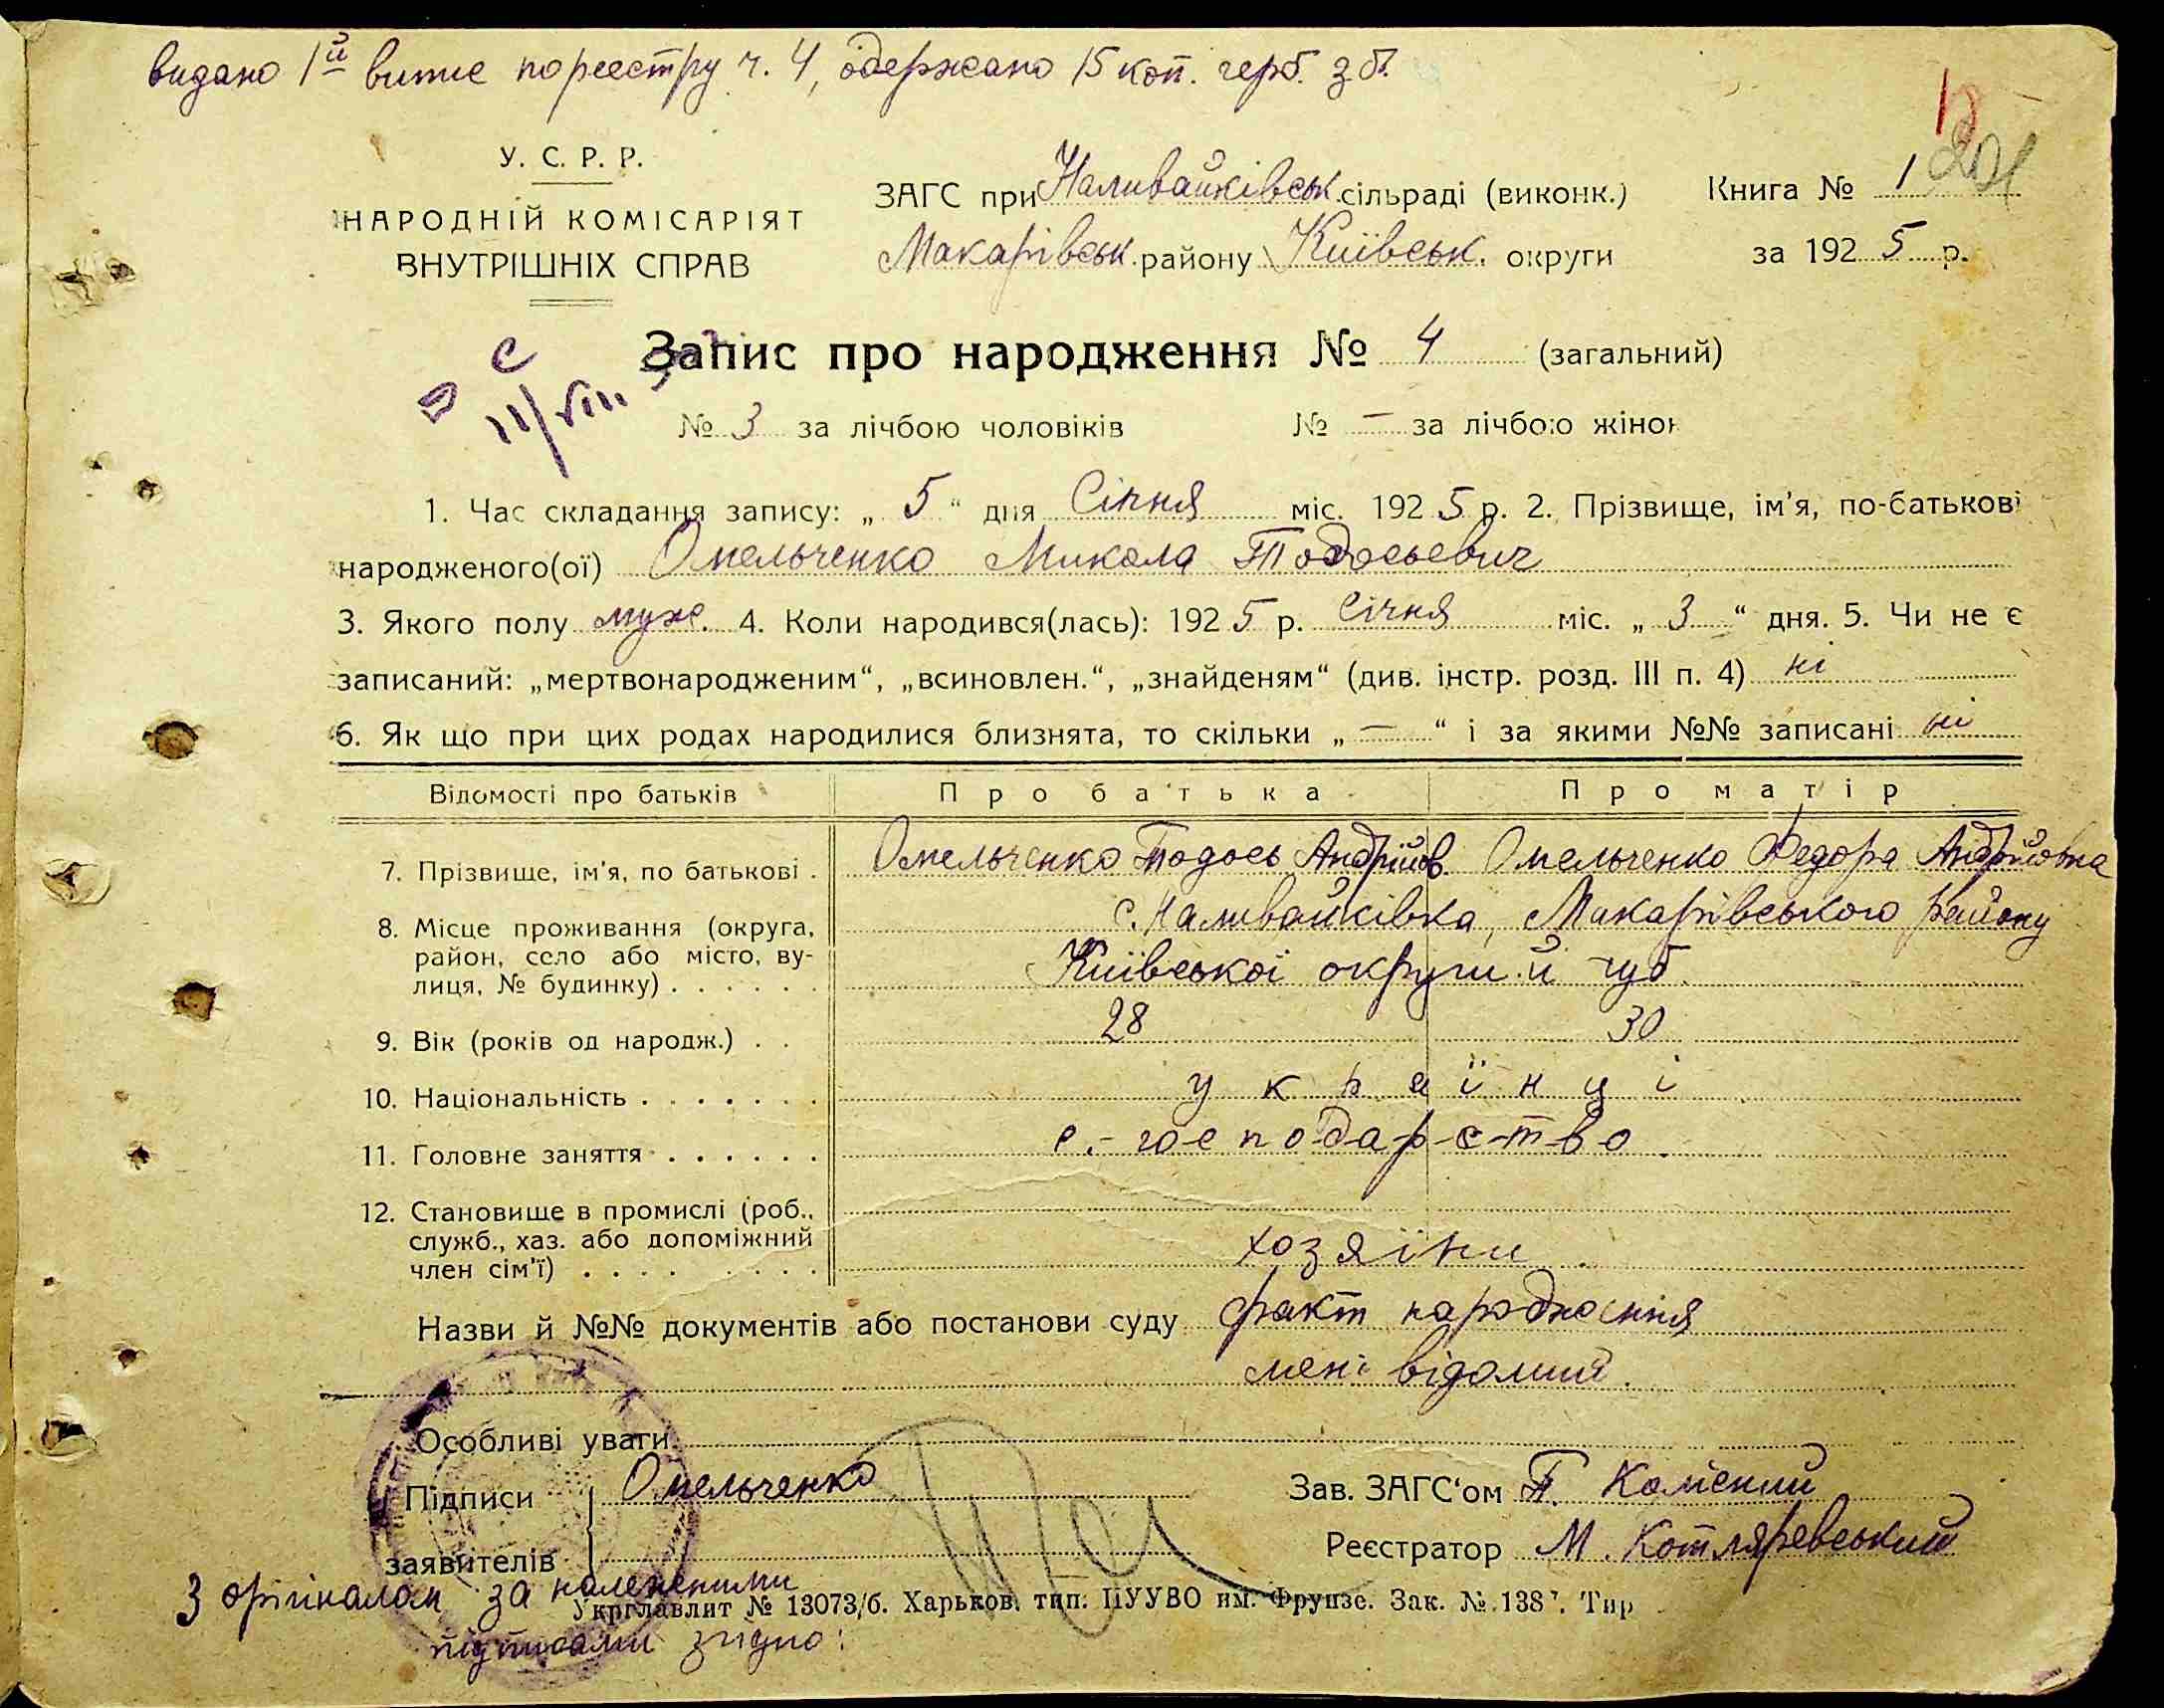 видано 1й витис по реестру ч. 4, одержано 15 коп. герб. зб.
У. С. Р. Р.
НАРОДНІЙ КОМІСАРІЯТ
ВНУТРІШНІХ СПРАВ
ЗАГС при Наливайківськ. сільраді (виконк.)
Макарівськ. району Київськ. округи
Книга № 1
за 1925 р.
Запис про народження № 4 (загальний)
№ 3 за лічбою чоловіків № — за лічбою жінок
1. Час складання запису: „5“ дня Січня міс. 1925 р. 2. Прізвище, ім'я, по-батькові
народженого(ої) Омельченко Микола Тодосьевич
3. Якого полу муж. 4. Коли народився(лась): 1925 р. Січня міс. „3“ дня. 5. Чи не є
записаний: „мертвонародженим“, „всиновлен.“, „знайденям“ (див. інстр. розд. III п. 4) ні
6. Як що при цих родах народилися близнята, то скільки „—“ і за якими №№ записані ні
Відомості про батьків Про батька Про матір
7. Прізвище, ім'я, по батькові . Омельченко Тодось Андрійов. Омельченко Федора Андрійовна
8. Місце проживання (округа, с. Наливайківка, Макарівського району
район, село або місто, ву-
лиця, № будинку) . . . . . . Київської округи й губ.
9. Вік (років од народж.) . . 28 30
10. Національність . . . . . . . українці
11. Головне заняття . . . . . . с.-господарство.
12. Становище в промислі (роб.,
служб., хаз. або допоміжний
член сім'ї) . . . . . . . . хозяїни
Назви й №№ документів або постанови суду факт народження
мені відомий.
Особливі уваги
Підписи Омельченко
заявителів
Зав. ЗАГС'ом П.
Реєстратор М. Котляревський
З орігіналом за належними
Укрглавлит № 13073/б. Харьков. тип. ПУУВО им. Фрунзе. Зак. № 138 . Тир
підписами згидно: